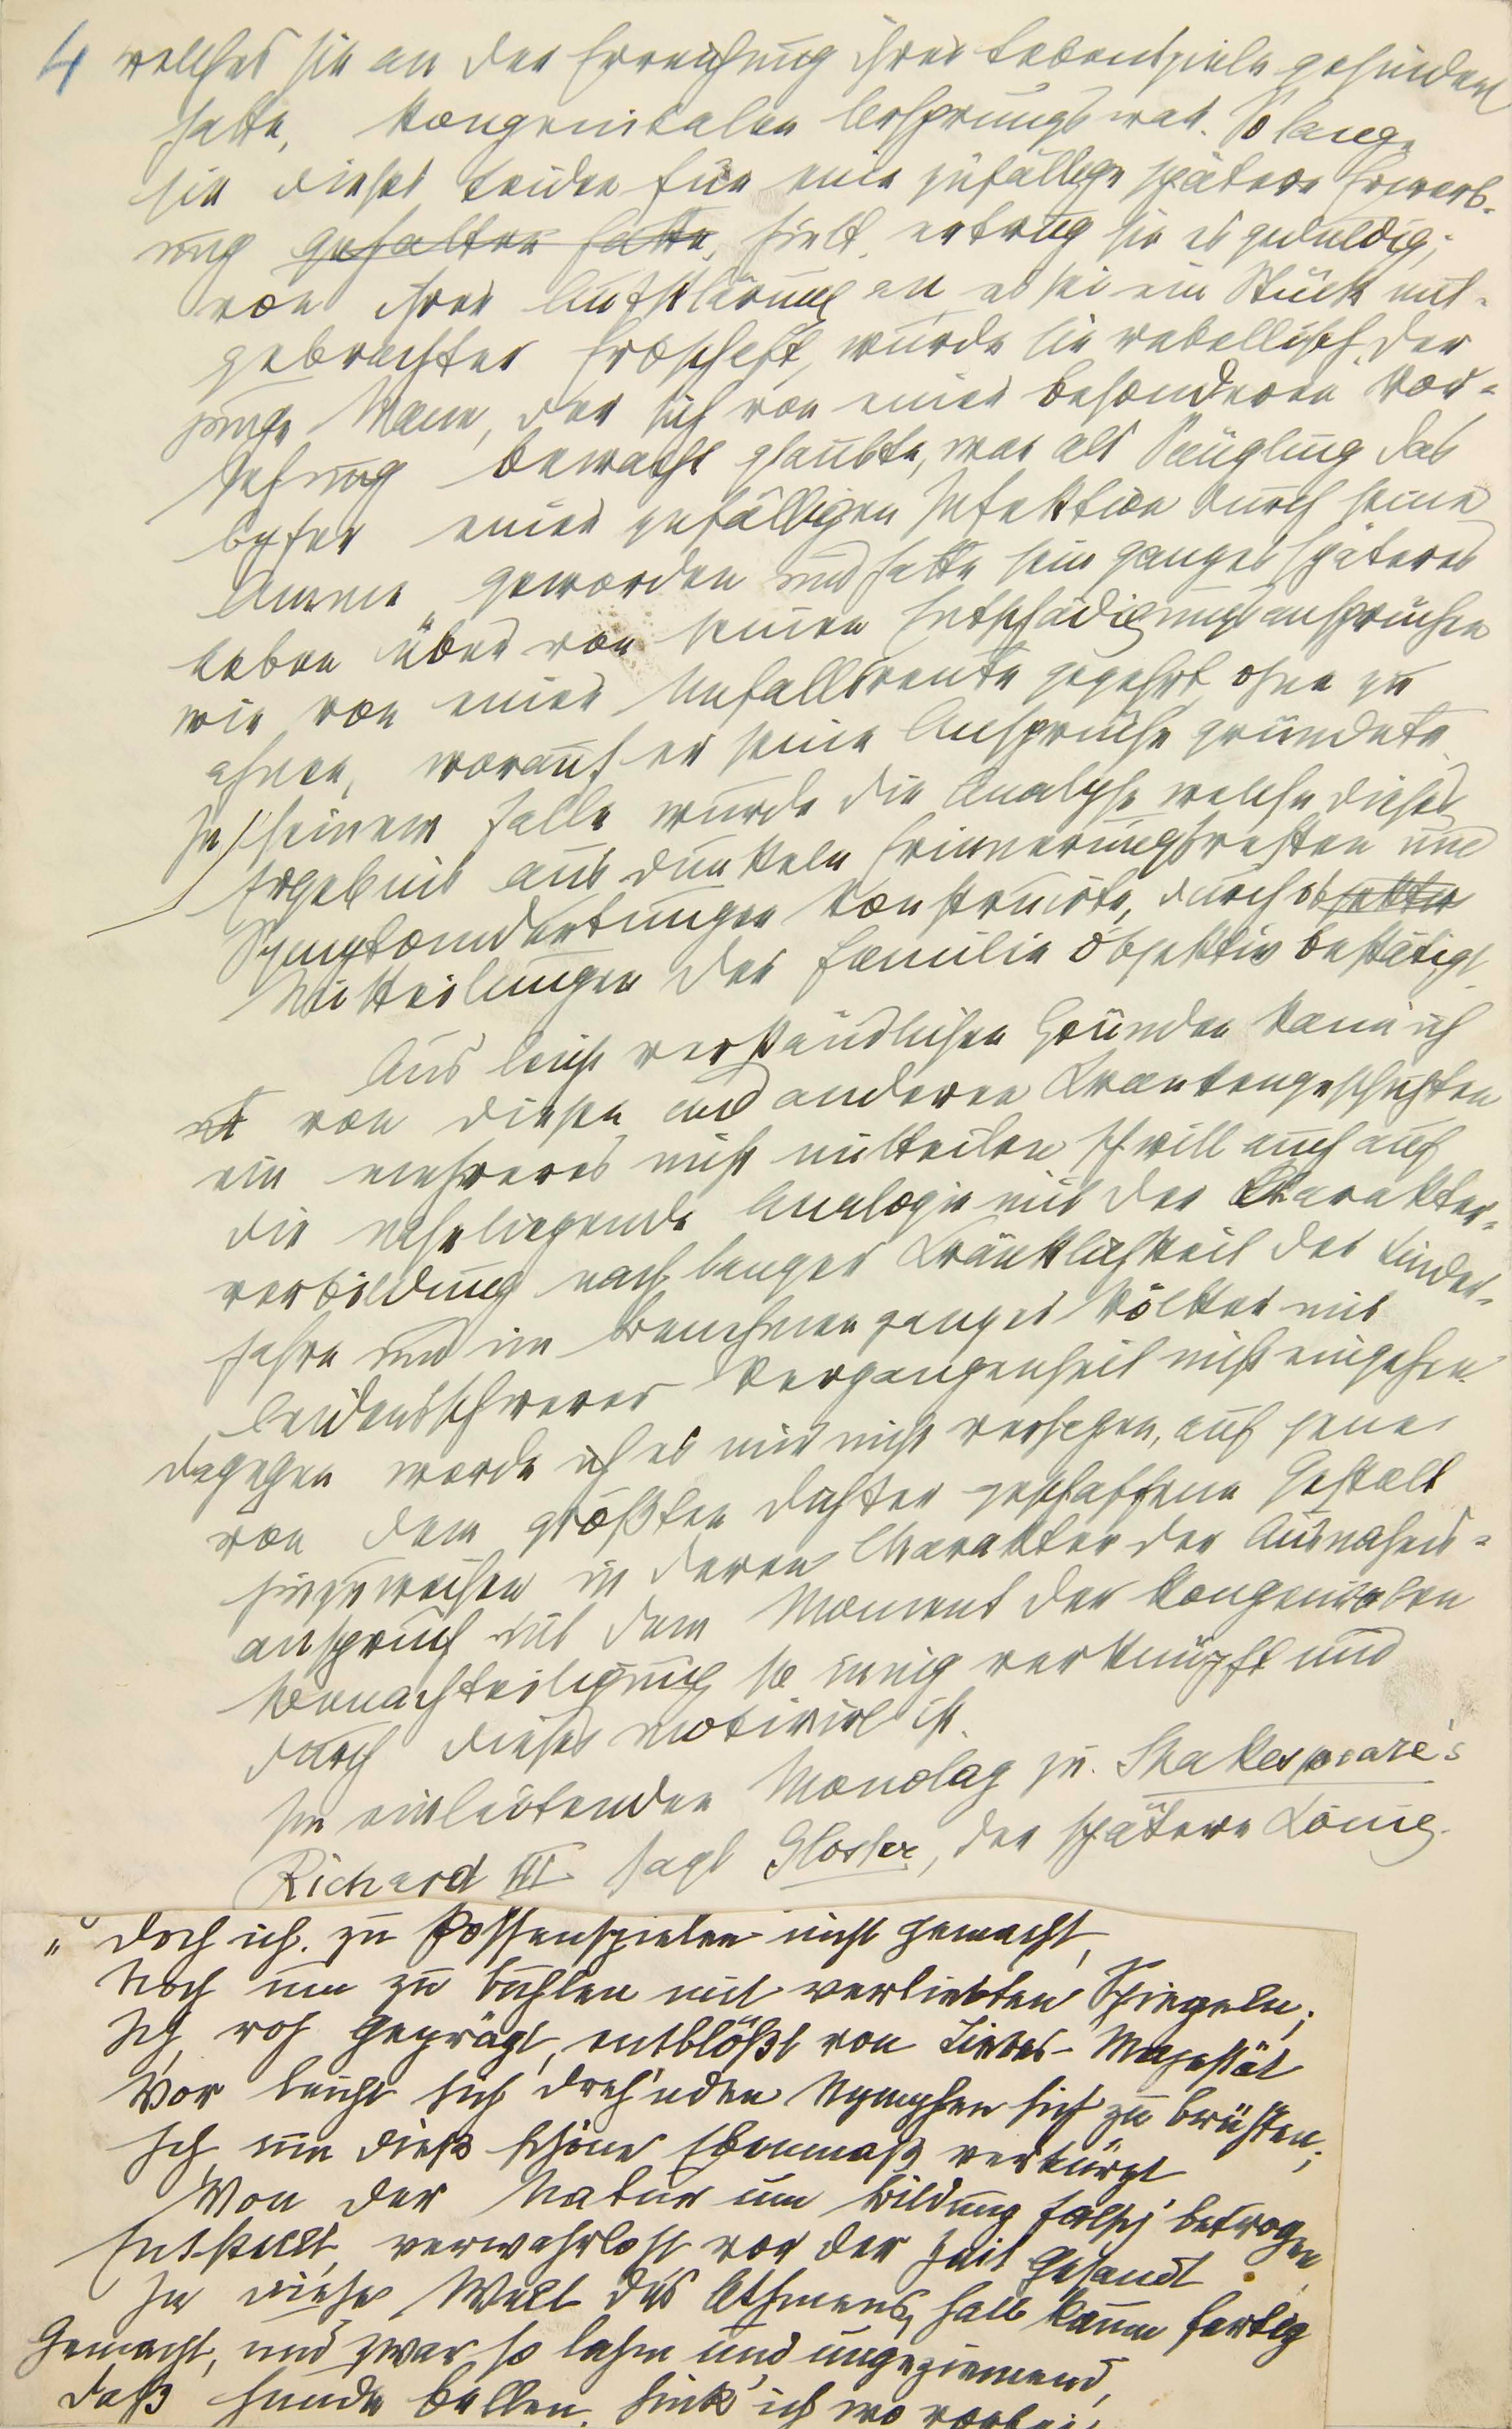 4 welches sie an der Erreichung ihrer Lebensziele gehindert
hatte, kongenitalen Ursprungs war. So lange
sie dieses Leiden für eine zufällige spätere Erwerb-
ung gehalten hatte, hielt, ertrug sie es geduldig;
von ihrer Aufklärung an, es sei ein Stück mit-
gebrachter Erbschaft, wurde sie rebellisch. Der
junge Mann, der sich von einer besonderen Vor-
sehung bewacht glaubte, war als Säugling das
Opfer einer zufälligen Infektion durch seine
Amme geworden und hatte sein ganzes späteres
Leben über von seinen Entschädigungsansprüchen
wie von einer Unfallsrente gezehrt, ohne zu
ahnen, worauf er seine Ansprüche gründete.
In seinem Falle wurde die Analyse, welche dieses
Ergebnis aus dunkeln Erinnerungsresten und
Symptomdeutungen konstruirte, durch objektiv
Mitteilungen der Familie objektiv bestätigt.
Aus leicht verständlichen Gründen kann ich
von diesen und anderen Krankengeschichten
ein mehreres nicht mitteilen. Ich will auch auf
die naheliegende Analogie mit der Charakter-
verbildung nach langer Kränklichkeit der Kinder-
jahre und im Benehmen ganzer Völker mit
leidensschwerer Vergangenheit nicht eingehen.
Dagegen werde ich es mir nicht versagen, auf jene
von dem größten Dichter geschaffene Gestalt
hinzuweisen, in deren Charakter der Ausnahms-
anspruch mit dem Moment der kongenitalen
Benachteiligung so innig verknüpft und
durch dieses motivirt ist.
Im einleitenden Monolog zu Shakespeare's
Richard III sagt Gloster, der spätere König.
„Doch ich, zu Possenspielen nicht gemacht,
Noch um zu buhlen mit verliebten Spiegeln;
Ich, roh geprägt, entblößt von Liebes-Majestät
Vor leicht sich dreh'nden Nymphen sich zu brüsten;
Ich, um dieß schöne Ebenmaß verkürzt
Von der Natur um Bildung falsch betrogen
Entstellt, verwahrlost, vor der Zeit gesandt
In diese Welt des Athmens, halb kaum fertig
Gemacht, und zwar so lahm und ungeziemend,
Daß Hunde bellen, hink' ich wo vorbei;